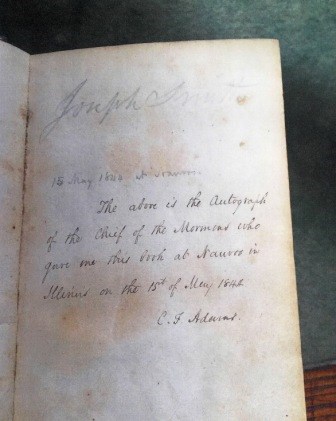 Joseph Smith
15 May 1844 At Nauvoo.
The above is the Autograph
of the Chief of the Mormons who
gave me this book at Nauvoo in
Illinois on the 15th of May 1844
C. F. Adams.